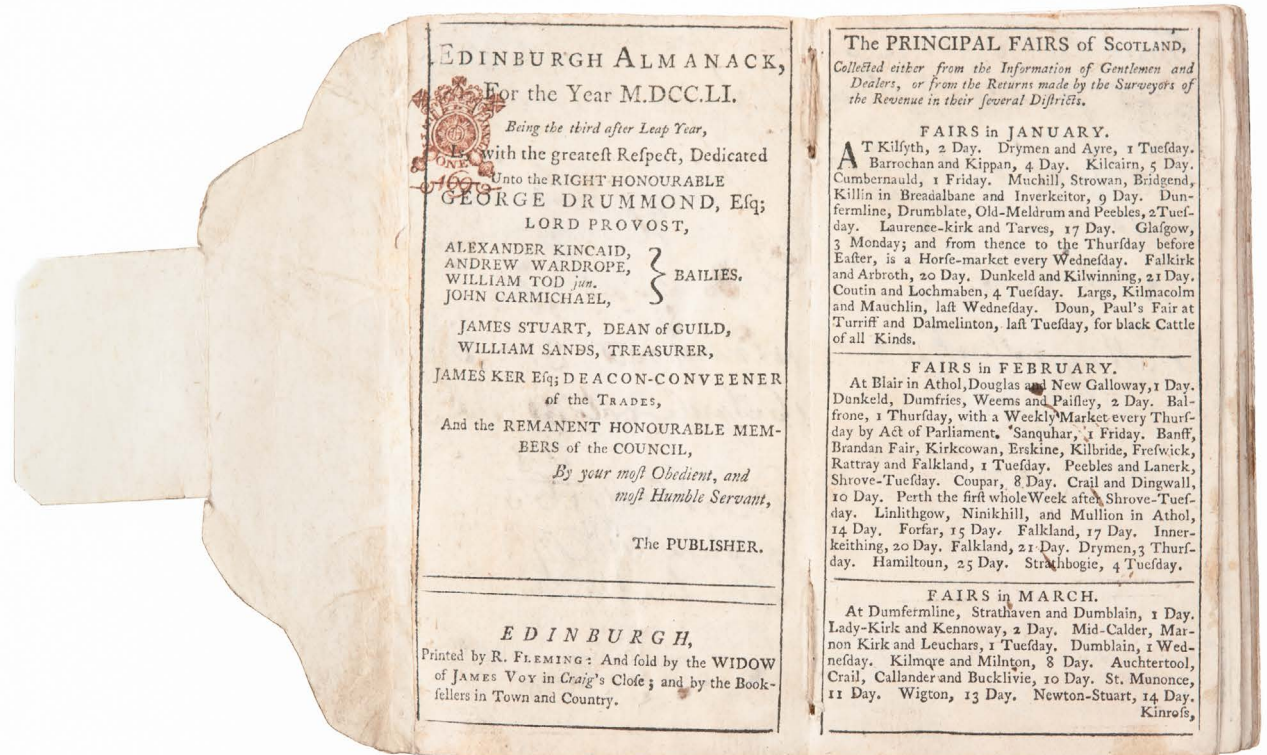 EDINBURGH ALMANACK,
For the Year M.DCC.LI.
Being the third after Leap Year,
Is, with the greateſt Reſpect, Dedicated
Unto the RIGHT HONOURABLE
GEORGE DRUMMOND, Eſq;
LORD PROVOST,
ALEXANDER KINCAID,
ANDREW WARDROPE,
WILLIAM TOD jun.
JOHN CARMICHAEL,
BAILIES.
JAMES STUART, DEAN of GUILD,
WILLIAM SANDS, TREASURER,
JAMES KER Eſq; DEACON-CONVEENER
of the TRADES,
And the REMANENT HONOURABLE MEM-
BERS of the COUNCIL,
By your moſt Obedient, and
moſt Humble Servant,
The PUBLISHER.
EDINBURGH,
Printed by R. FLEMING: And ſold by the WIDOW
of JAMES VOY in Craig's Cloſe; and by the Book-
ſellers in Town and Country.
ONE
169
The PRINCIPAL FAIRS of SCOTLAND,
Collected either from the Information of Gentlemen and
Dealers, or from the Returns made by the Surveyors of
the Revenue in their ſeveral Diſtricts.
FAIRS in JANUARY.
AT Kilſyth, 2 Day. Drymen and Ayre, 1 Tueſday.
Barrochan and Kippan, 4 Day. Kilcairn, 5 Day.
Cumbernauld, 1 Friday. Muchill, Strowan, Bridgend,
Killin in Breadalbane and Inverkeitor, 9 Day. Dun-
fermline, Drumblate, Old-Meldrum and Peebles, 2 Tueſ-
day. Laurence-kirk and Tarves, 17 Day. Glaſgow,
3 Monday; and from thence to the Thurſday before
Eaſter, is a Horſe-market every Wedneſday. Falkirk
and Arbroth, 20 Day. Dunkeld and Kilwinning, 21 Day.
Coutin and Lochmaben, 4 Tueſday. Largs, Kilmacolm
and Mauchlin, laſt Wedneſday. Doun, Paul's Fair at
Turriff and Dalmelinton, laſt Tueſday, for black Cattle
of all Kinds.
FAIRS in FEBRUARY.
At Blair in Athol, Douglas and New Galloway, 1 Day.
Dunkeld, Dumfries, Weems and Paiſley, 2 Day. Bal-
frone, 1 Thurſday, with a Weekly Market every Thurſ-
day by Act of Parliament. Sanquhar, 1 Friday. Banff,
Brandan Fair, Kirkcowan, Erskine, Kilbride, Freſwick,
Rattray and Falkland, 1 Tueſday. Peebles and Lanerk,
Shrove-Tueſday. Coupar, 8 Day. Crail and Dingwall,
10 Day. Perth the firſt whole Week after Shrove-Tueſ-
day. Linlithgow, Ninikhill, and Mullion in Athol,
14 Day. Forfar, 15 Day. Falkland, 17 Day. Inner-
keithing, 20 Day. Falkland, 21 Day. Drymen, 3 Thurſ-
day. Hamiltoun, 25 Day. Strathbogie, 4 Tueſday.
FAIRS in MARCH.
At Dumfermline, Strathaven and Dumblain, 1 Day.
Lady-Kirk and Kennoway, 2 Day. Mid-Calder, Mar-
non Kirk and Leuchars, 1 Tueſday. Dumblain, 1 Wed-
neſday. Kilmore and Milnton, 8 Day. Auchtertool,
Crail, Callander and Bucklivie, 10 Day. St. Munonce,
11 Day. Wigton, 13 Day. Newton-Stuart, 14 Day.
Kinroſs,